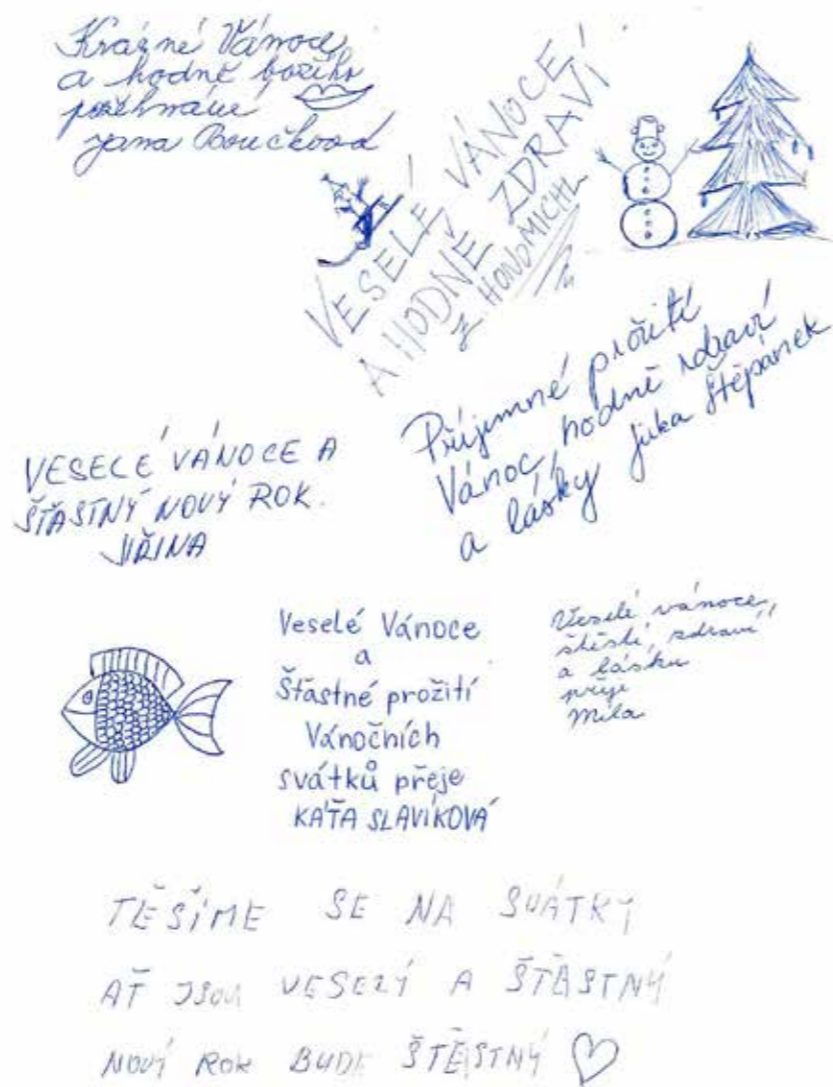 Krásné Vánoce
a hodně božího
požehnání
Jana Boučková
VESELÉ VÁNOCE!
A HODNĚ ZDRAVÍ
HONS MICHL
Příjemné prožití
Vánoc, hodně zdraví
a lásky Jirka Štěpánek
VESELÉ VÁNOCE A
ŠŤASTNÝ NOVÝ ROK.
JIŘINA
Veselé Vánoce
a
Šťastné prožití
Vánočních
svátků přeje
KÁŤA SLAVÍKOVÁ
Veselé vánoce,
štěstí, zdraví
a lásku
přeje
Míla
TĚŠÍME SE NA SVÁTKY
AŤ JSOU VESELÝ A ŠŤASTNÝ
NOVÝ ROK BUDE ŠTĚSTNÝ